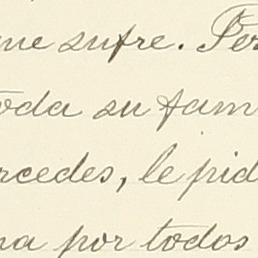 me sufre. Per
oda su fam
rcedes, le pid
na por todos